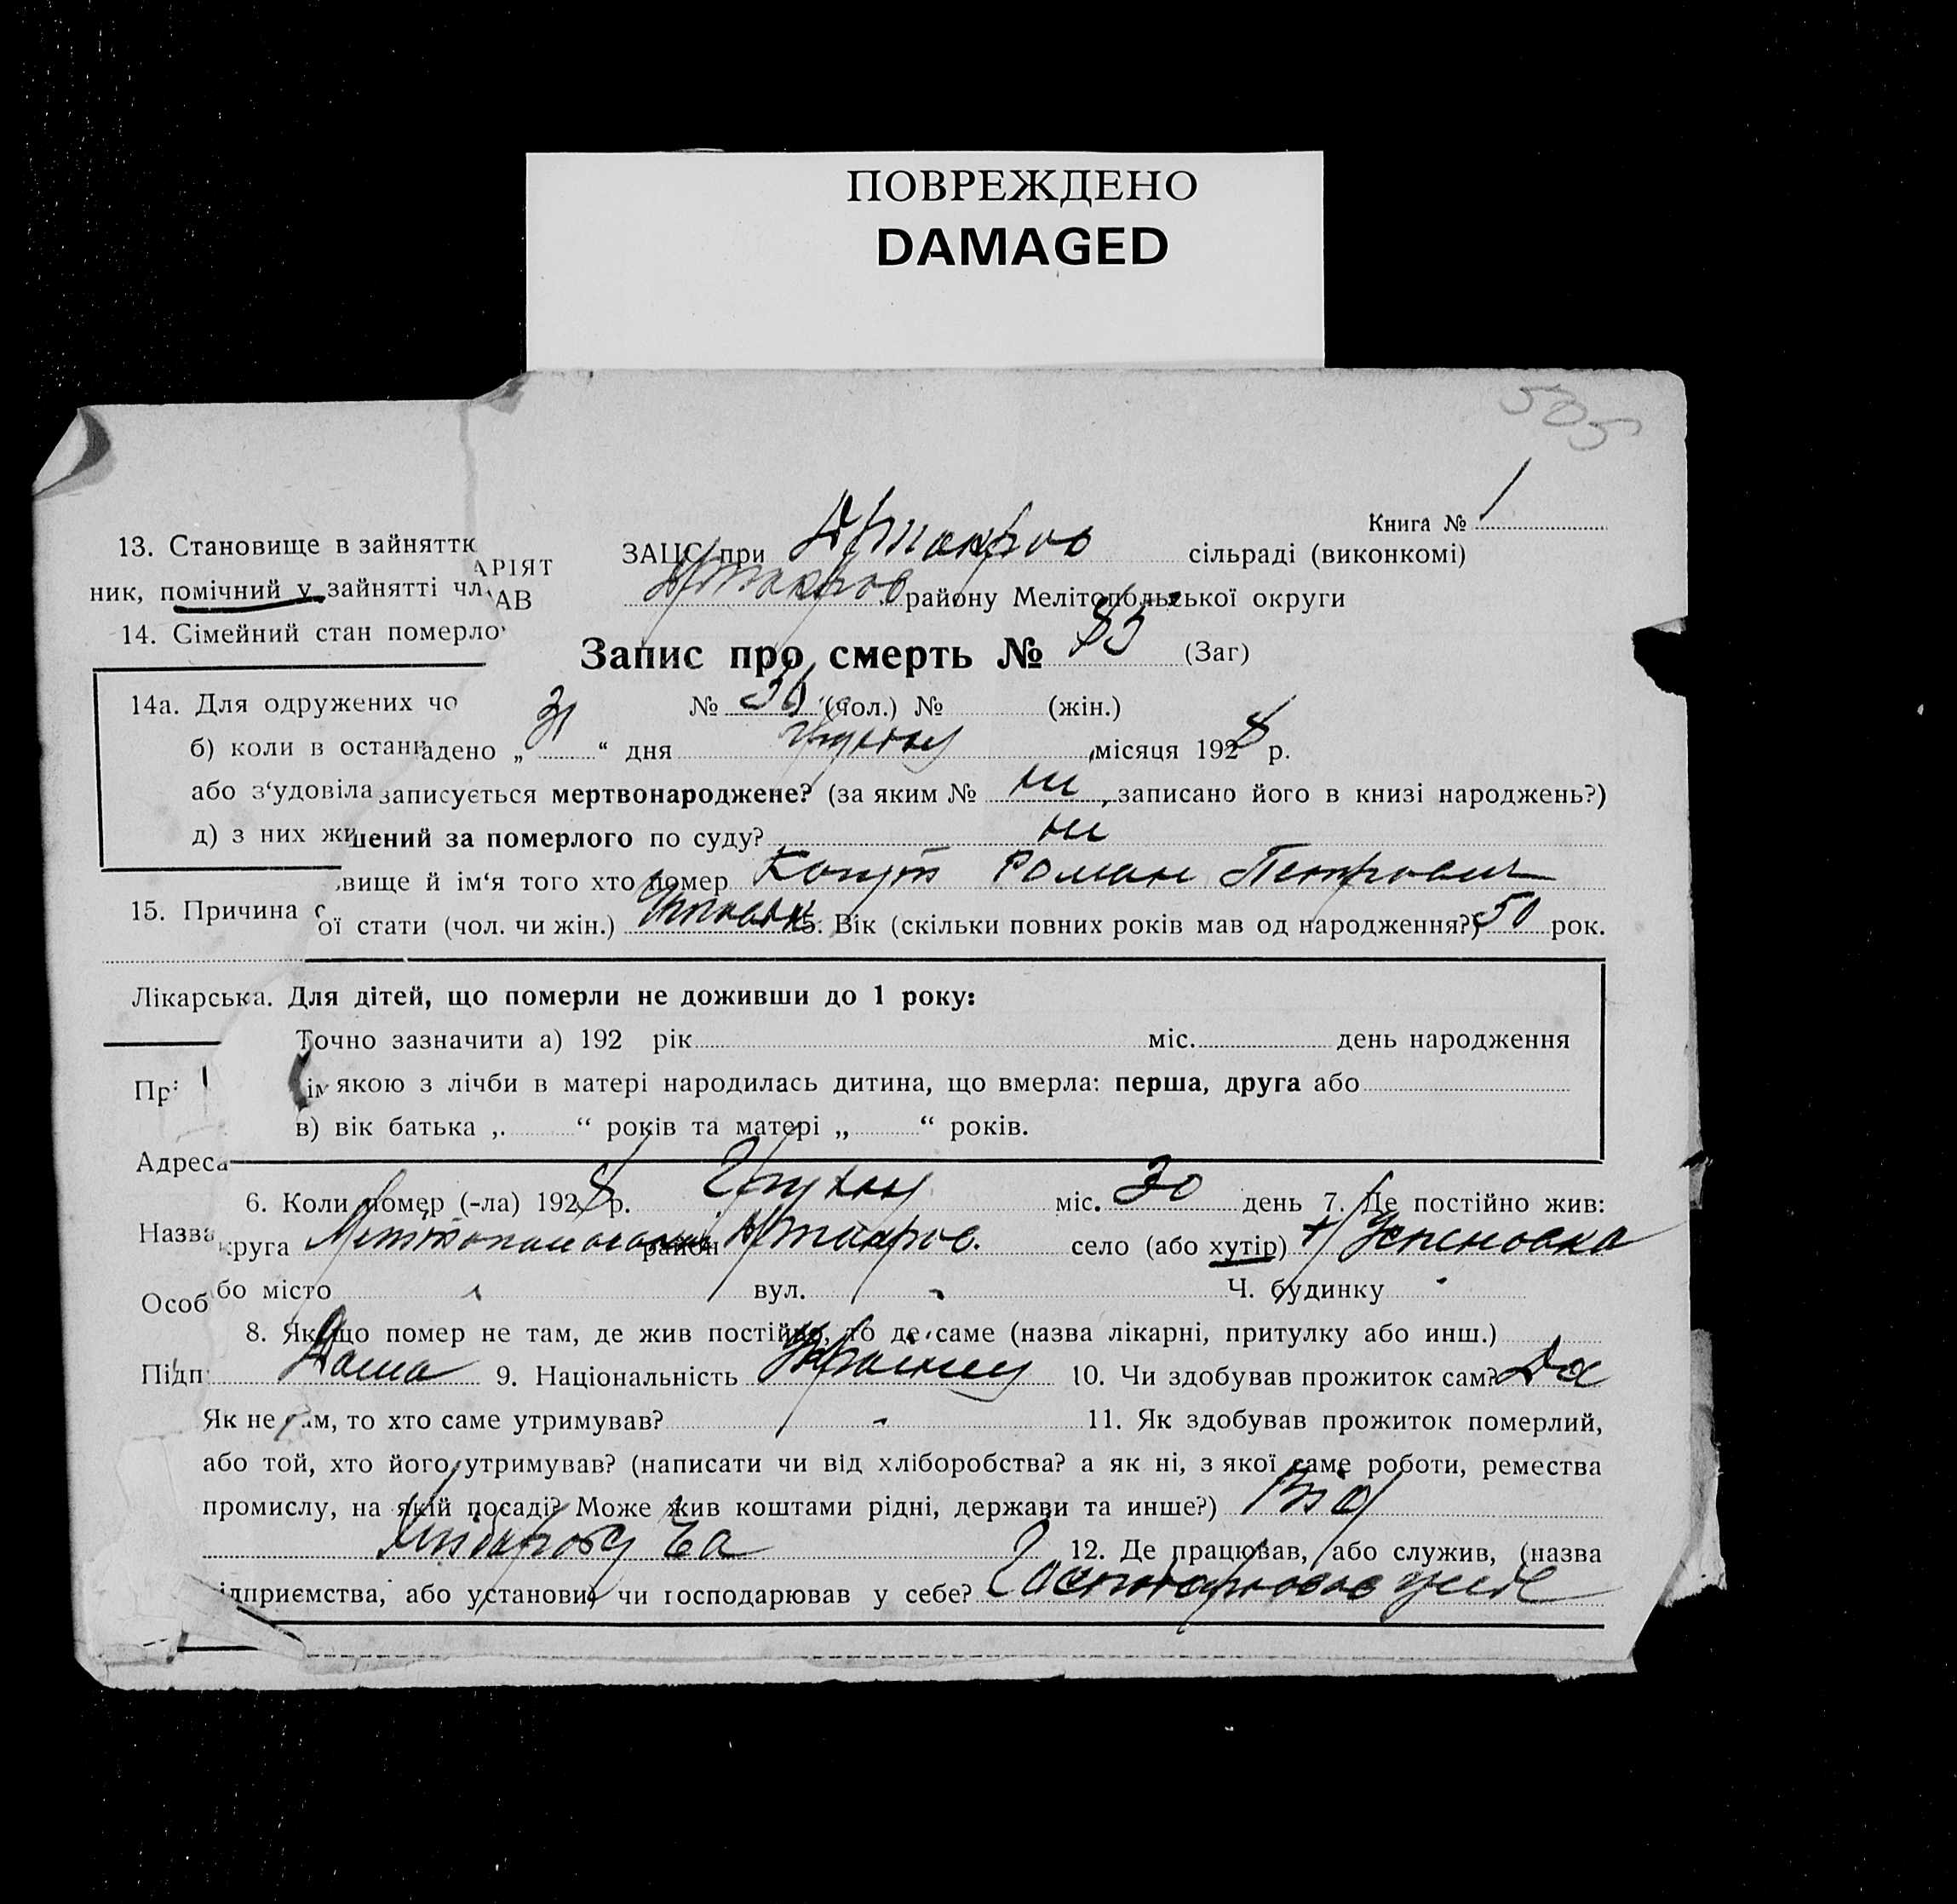 ПОВРЕЖДЕНО
DAMAGED
505
Книга № 1
ЗАЦС при Якимов сільраді (виконкомі)
АРІЯТ
АВ
району Мелітопольської округи
Запис про смерть № 83 (Заг)
№ 36 (чол.) № (жін.)
адено „ 31 “ дня Грудня місяця 1928 р.
записується мертвонароджене? (за яким № ні, записано його в книзі народжень?)
шений за померлого по суду? ні
вище й ім‘я того хто помер Роман Петрович
ої стати (чол. чи жін.) 5. Вік (скільки повних років мав од народження?) 50 рок.
Для дітей, що померли не доживши до 1 року:
Точно зазначити а) 192 рік міс. день народження
якою з лічби в матері народилась дитина, що вмерла: перша, друга або
в) вік батька „ “ років та матері „ “ років.
6. Коли помер (-ла) 1928 р. Грудня міс. 30 день 7. Де постійно жив:
круга Мелітопольська район село (або хутір) Успеновка
бо місто вул. Ч. будинку
8. Якщо помер не там, де жив постійно, то де саме (назва лікарні, притулку або инш.)
Дома 9. Національність Украінец 10. Чи здобував прожиток сам? Да
Як не сам, то хто саме утримував? - 11. Як здобував прожиток померлий,
або той, хто його утримував? (написати чи від хліборобства? а як ні, з якої саме роботи, ремества
промислу, на якій посаді? Може жив коштами рідні, держави та инше?) Від
12. Де працював, або служив, (назва
ідприємства, або установи) чи господарював у себе? Господарював у себе
13. Становище в зайняттю
ник, помічний у зайнятті чл
14. Сімейний стан померло
14а. Для одружених чо
б) коли в останн
або з‘удовіла
д) з них жи
15. Причина с
Лікарська
Пр
Адреса
Назва
Особ
Підп